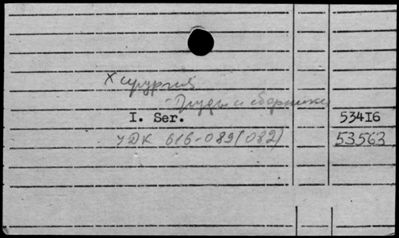 Хирургия
Труды и сборники
I. Ser. 534I6
УДК 616-089(082) 53563